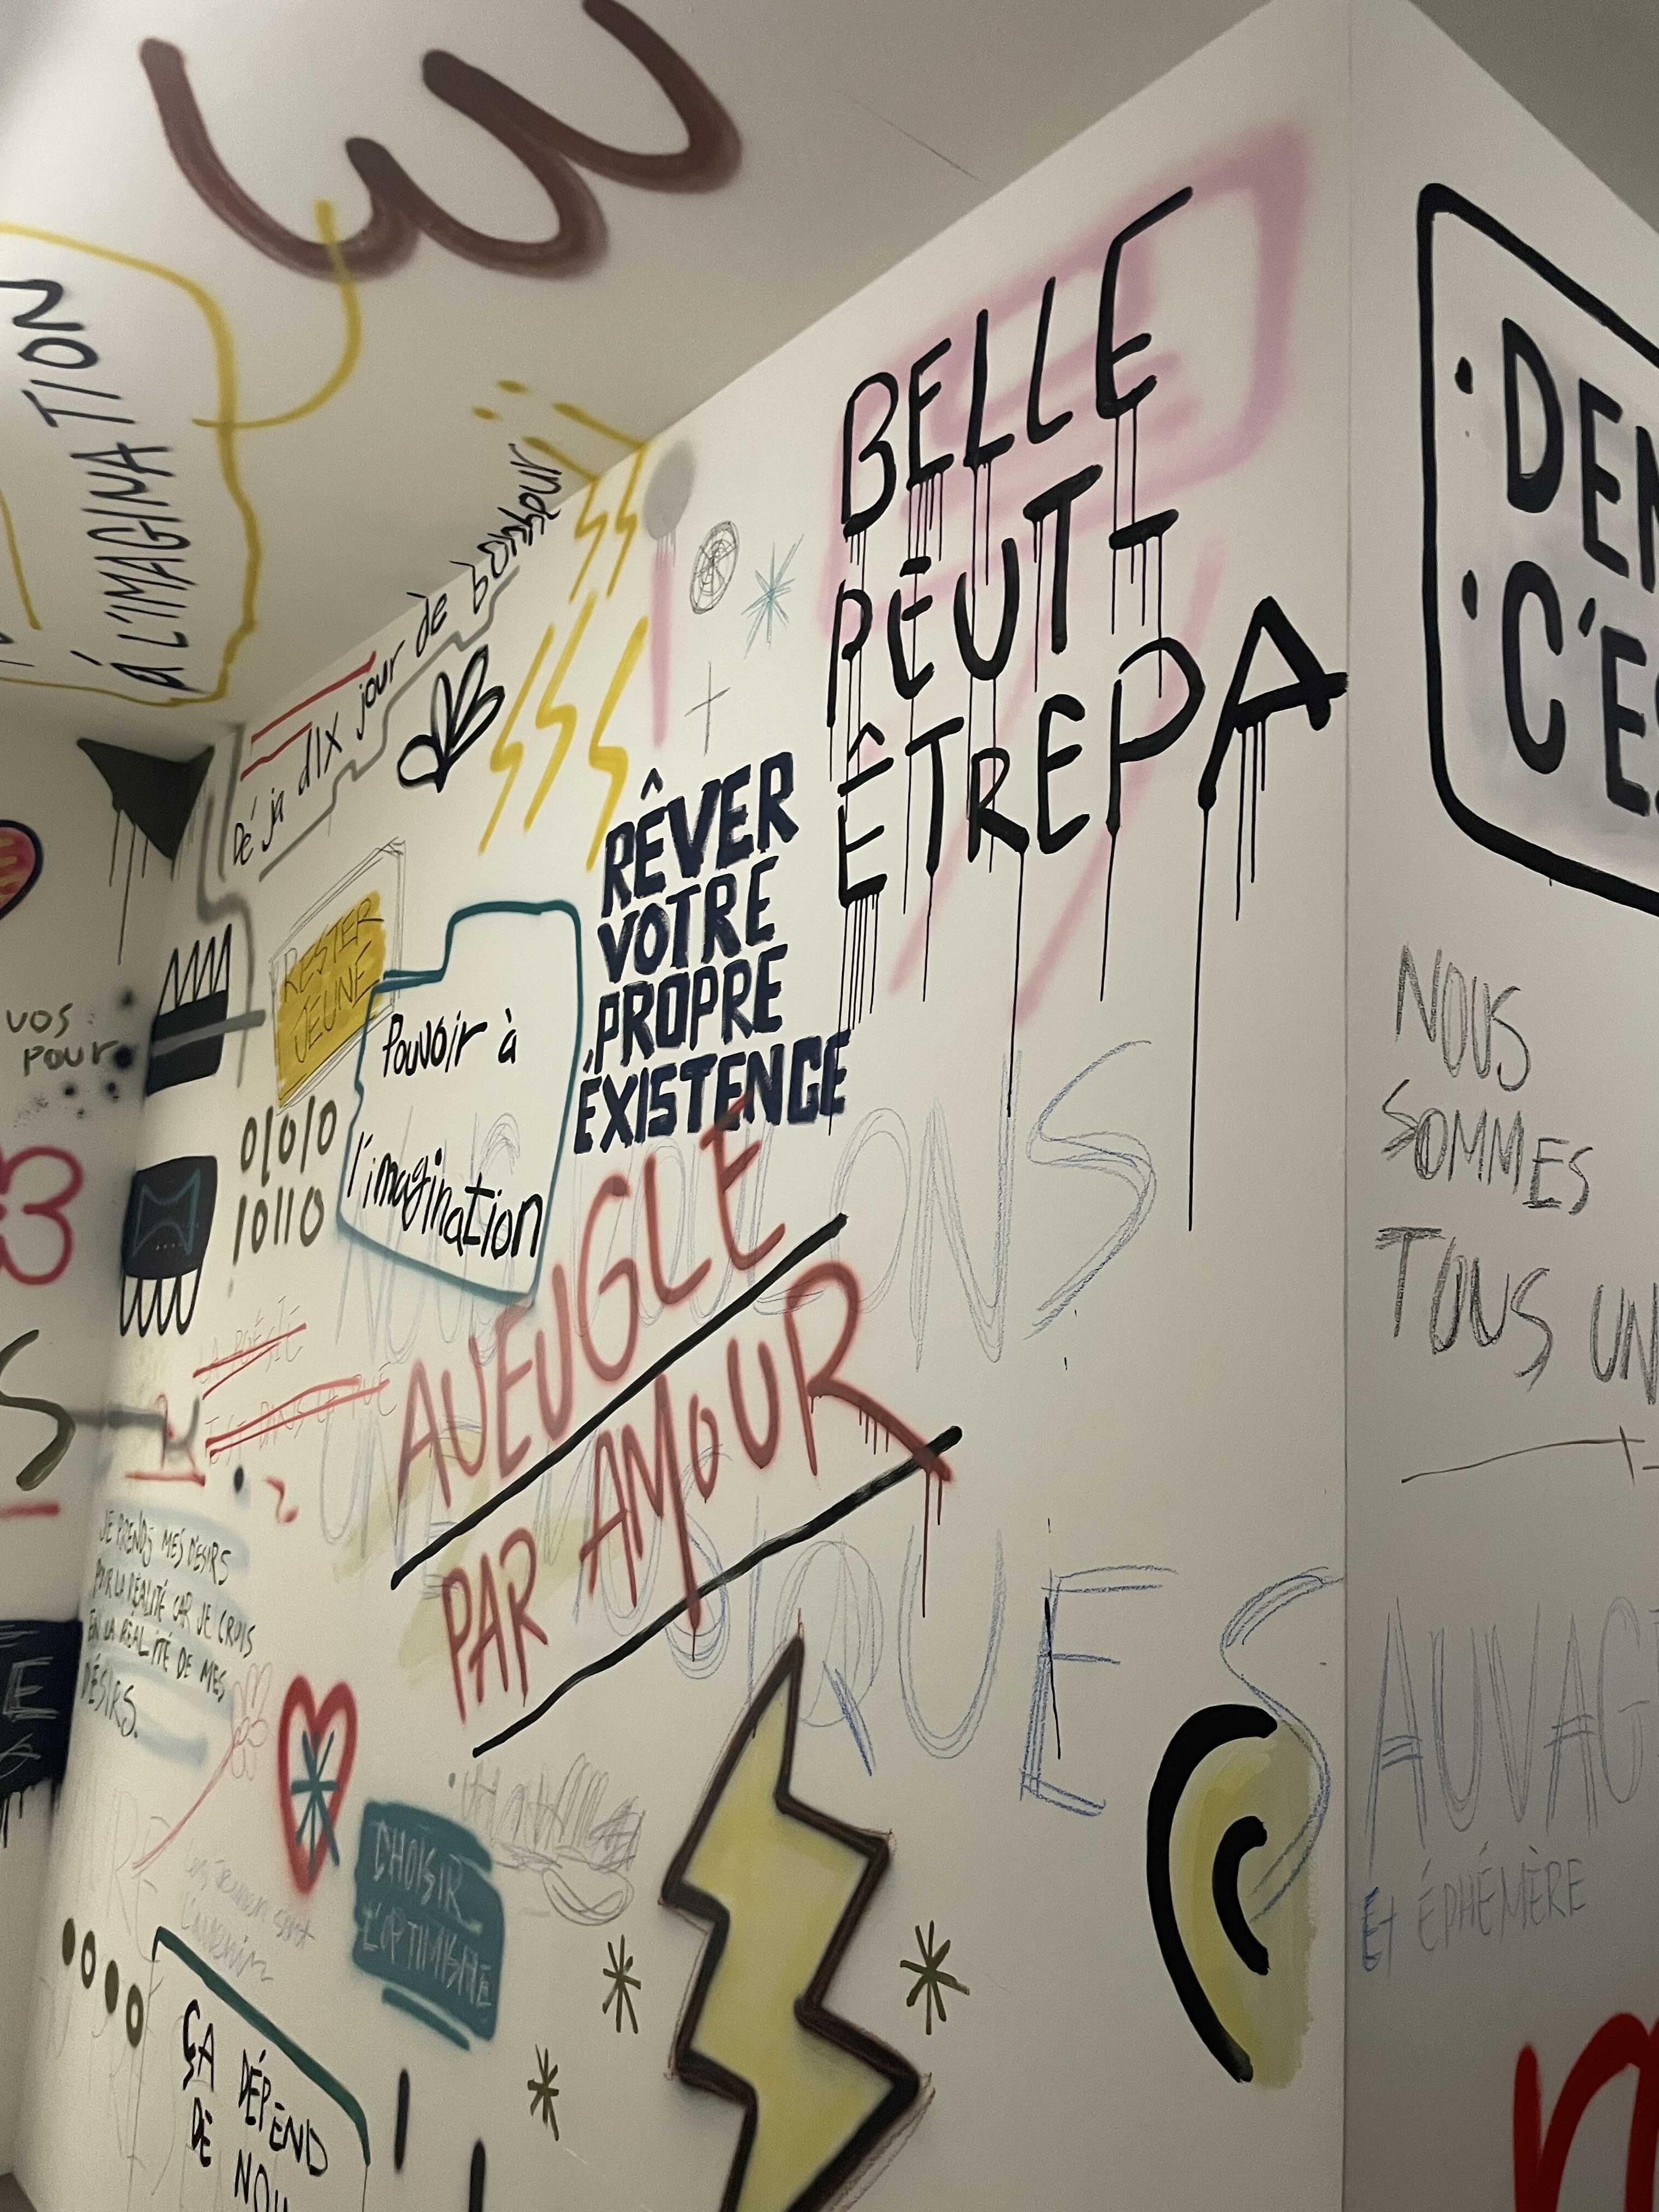 À L'IMAGINATION
Déjà dix jour de bonheur
BELLE
PEUT-
ÊTRE PA
C'ES
RÊVER
VOTRE
PROPRE
EXISTENCE
RESTER
JEUNE
Pouvoir à
l'imagination
VOS
POUR
01010
10110
NOUS VOULONS
AVEUGLE
PAR AMOUR
NOUS
SOMMES
TOUS UN
UNE MUSIQUES
LA POÉSIE
EST DANS LA RUE
JE PRENDS MES DÉSIRS
POUR LA RÉALITÉ CAR JE CROIS
EN LA RÉALITÉ DE MES
DÉSIRS.
AUVAG
ET ÉPHÉMÈRE
CHOISIR
L'OPTIMISME
ÇA DÉPEND
DE NOU